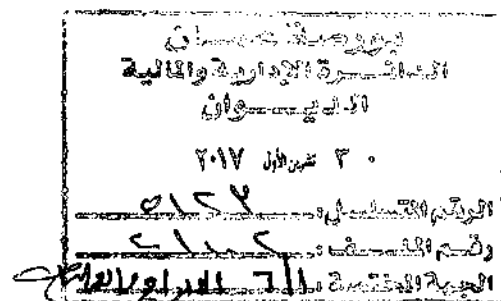 بورصة عمان
الدائرة الإدارية والمالية
الديوان
٠٣ تشرين الأول ٢٠١٧
الرقم المتسلسل: ٥١٢٧
رقم الملف:
الجهة المختصة: